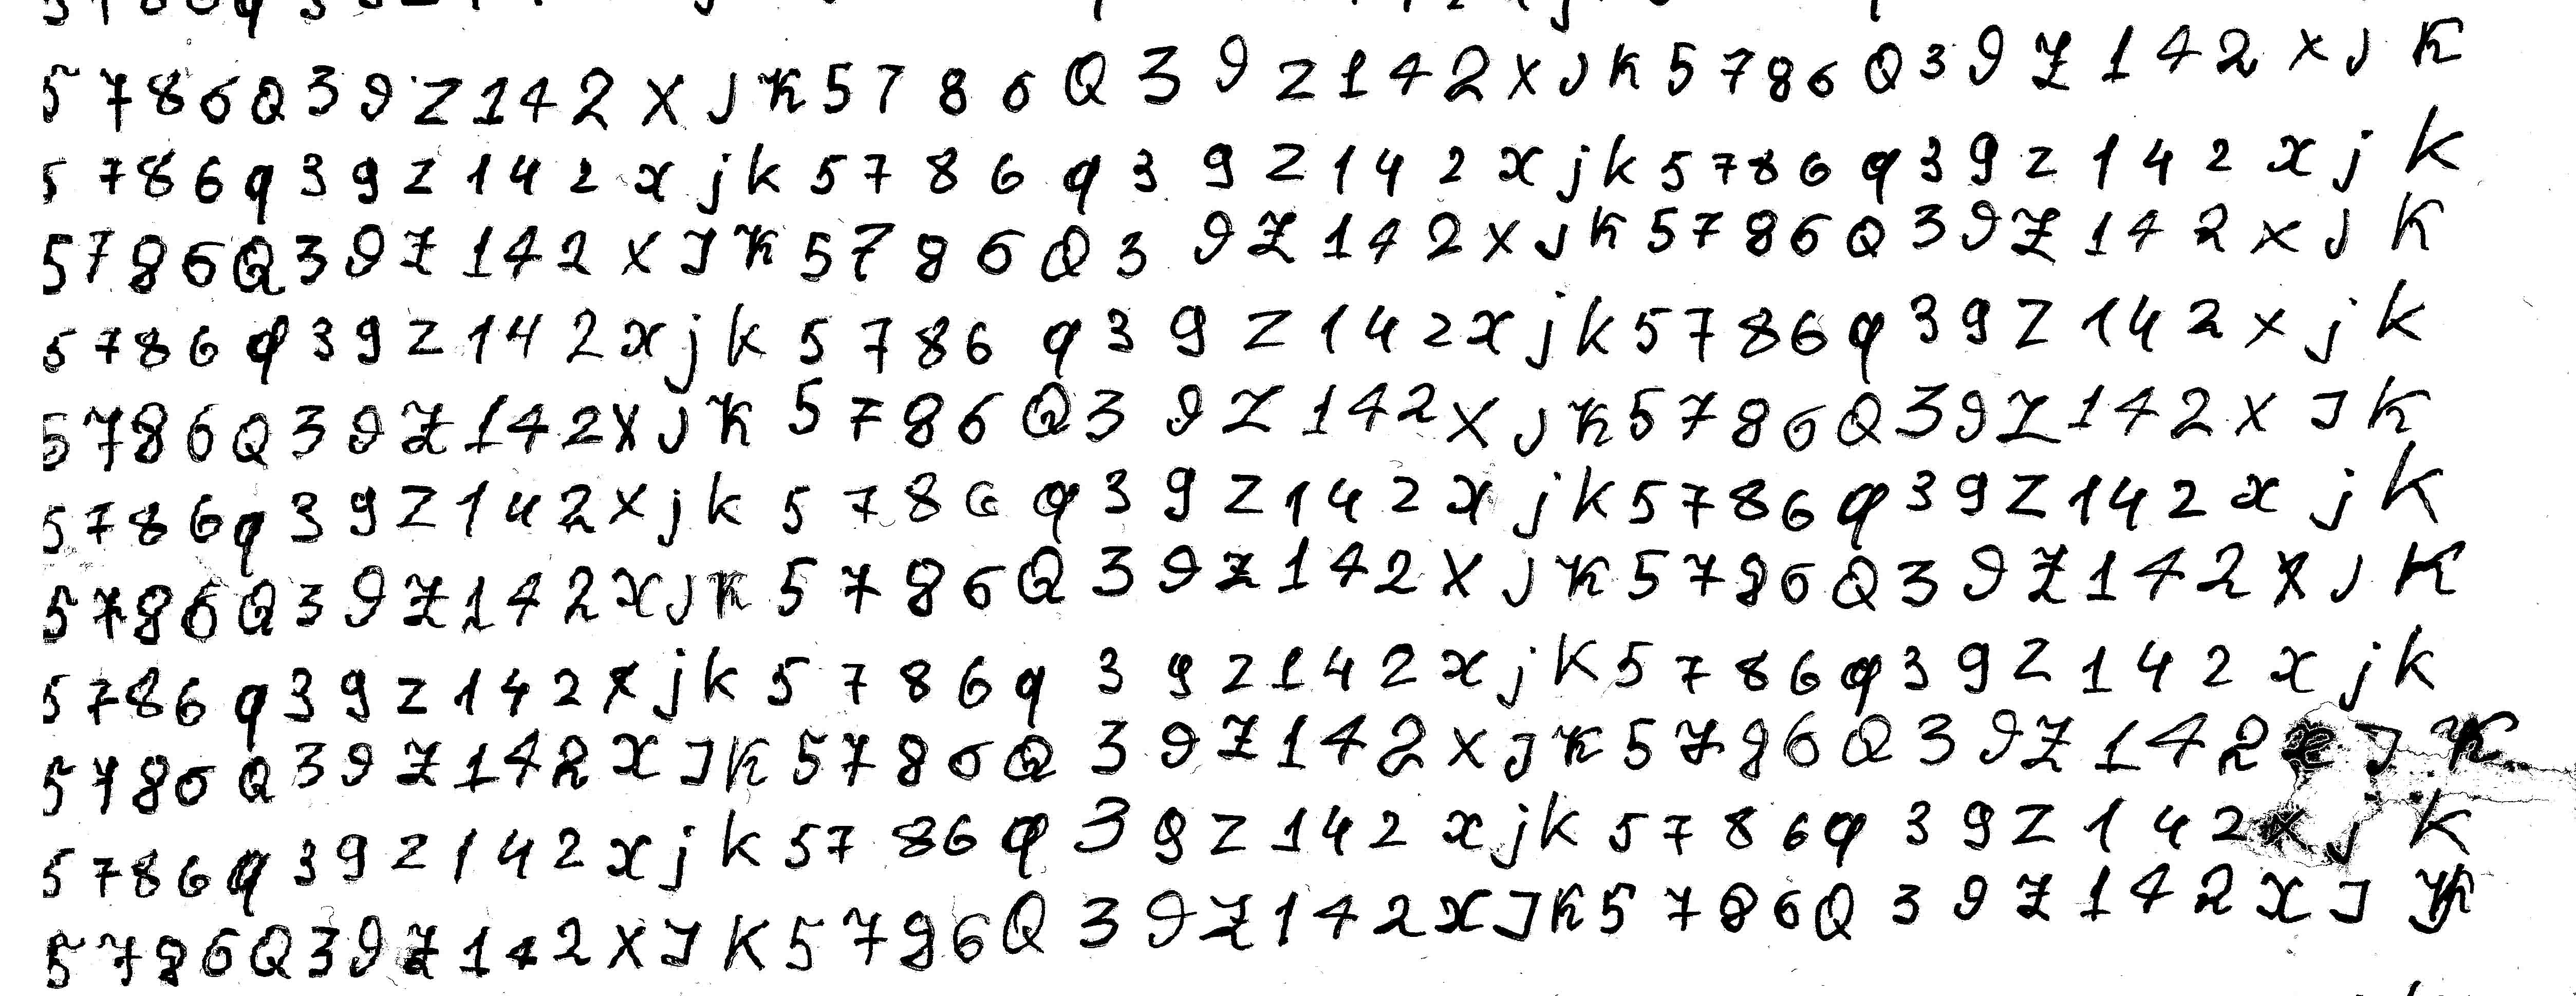 5 7 8 6 Q 3 9 Z 1 4 2 X J K 5 7 8 6 Q 3 9 Z 1 4 2 X J K 5 7 8 6 Q 3 9 Z 1 4 2 X J K
5 7 8 6 q 3 9 z 1 4 2 x j k 5 7 8 6 q 3 9 z 1 4 2 x j k 5 7 8 6 q 3 9 z 1 4 2 x j k
5 7 8 6 Q 3 9 Z 1 4 2 X J K 5 7 8 6 Q 3 9 Z 1 4 2 X J K 5 7 8 6 Q 3 9 Z 1 4 2 X J K
5 7 8 6 q 3 9 z 1 4 2 x j k 5 7 8 6 q 3 9 z 1 4 2 x j k 5 7 8 6 q 3 9 z 1 4 2 x j k
5 7 8 6 Q 3 9 Z 1 4 2 X J K 5 7 8 6 Q 3 9 Z 1 4 2 X J K 5 7 8 6 Q 3 9 Z 1 4 2 X J K
5 7 8 6 q 3 9 z 1 4 2 x j k 5 7 8 6 q 3 9 z 1 4 2 x j k 5 7 8 6 q 3 9 z 1 4 2 x j k
5 7 8 6 Q 3 9 Z 1 4 2 X J K 5 7 8 6 Q 3 9 Z 1 4 2 X J K 5 7 8 6 Q 3 9 Z 1 4 2 X J K
5 7 8 6 q 3 9 z 1 4 2 x j k 5 7 8 6 q 3 9 z 1 4 2 x j k 5 7 8 6 q 3 9 z 1 4 2 x j k
5 7 8 6 Q 3 9 Z 1 4 2 X J K 5 7 8 6 Q 3 9 Z 1 4 2 X J K 5 7 8 6 Q 3 9 Z 1 4 2 X J K
5 7 8 6 q 3 9 z 1 4 2 x j k 5 7 8 6 q 3 9 z 1 4 2 x j k 5 7 8 6 q 3 9 z 1 4 2 x j k
5 7 8 6 Q 3 9 Z 1 4 2 X J K 5 7 9 6 Q 3 9 Z 1 4 2 X J K 5 7 8 6 Q 3 9 Z 1 4 2 X J K